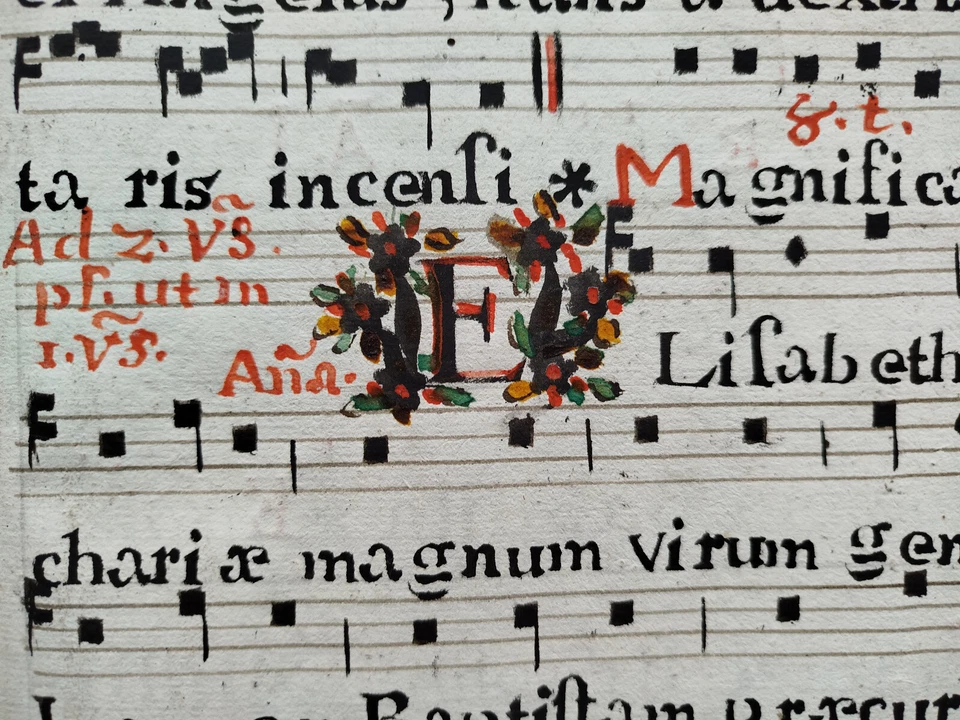 ta ris incenſi * Magnifica
8. t.
Ad 2. Vs̃.
pſ. ut in
1. Vs̃.
Añа. ELiſabeth
chariæ magnum virum gen
Baptiſtam præcur